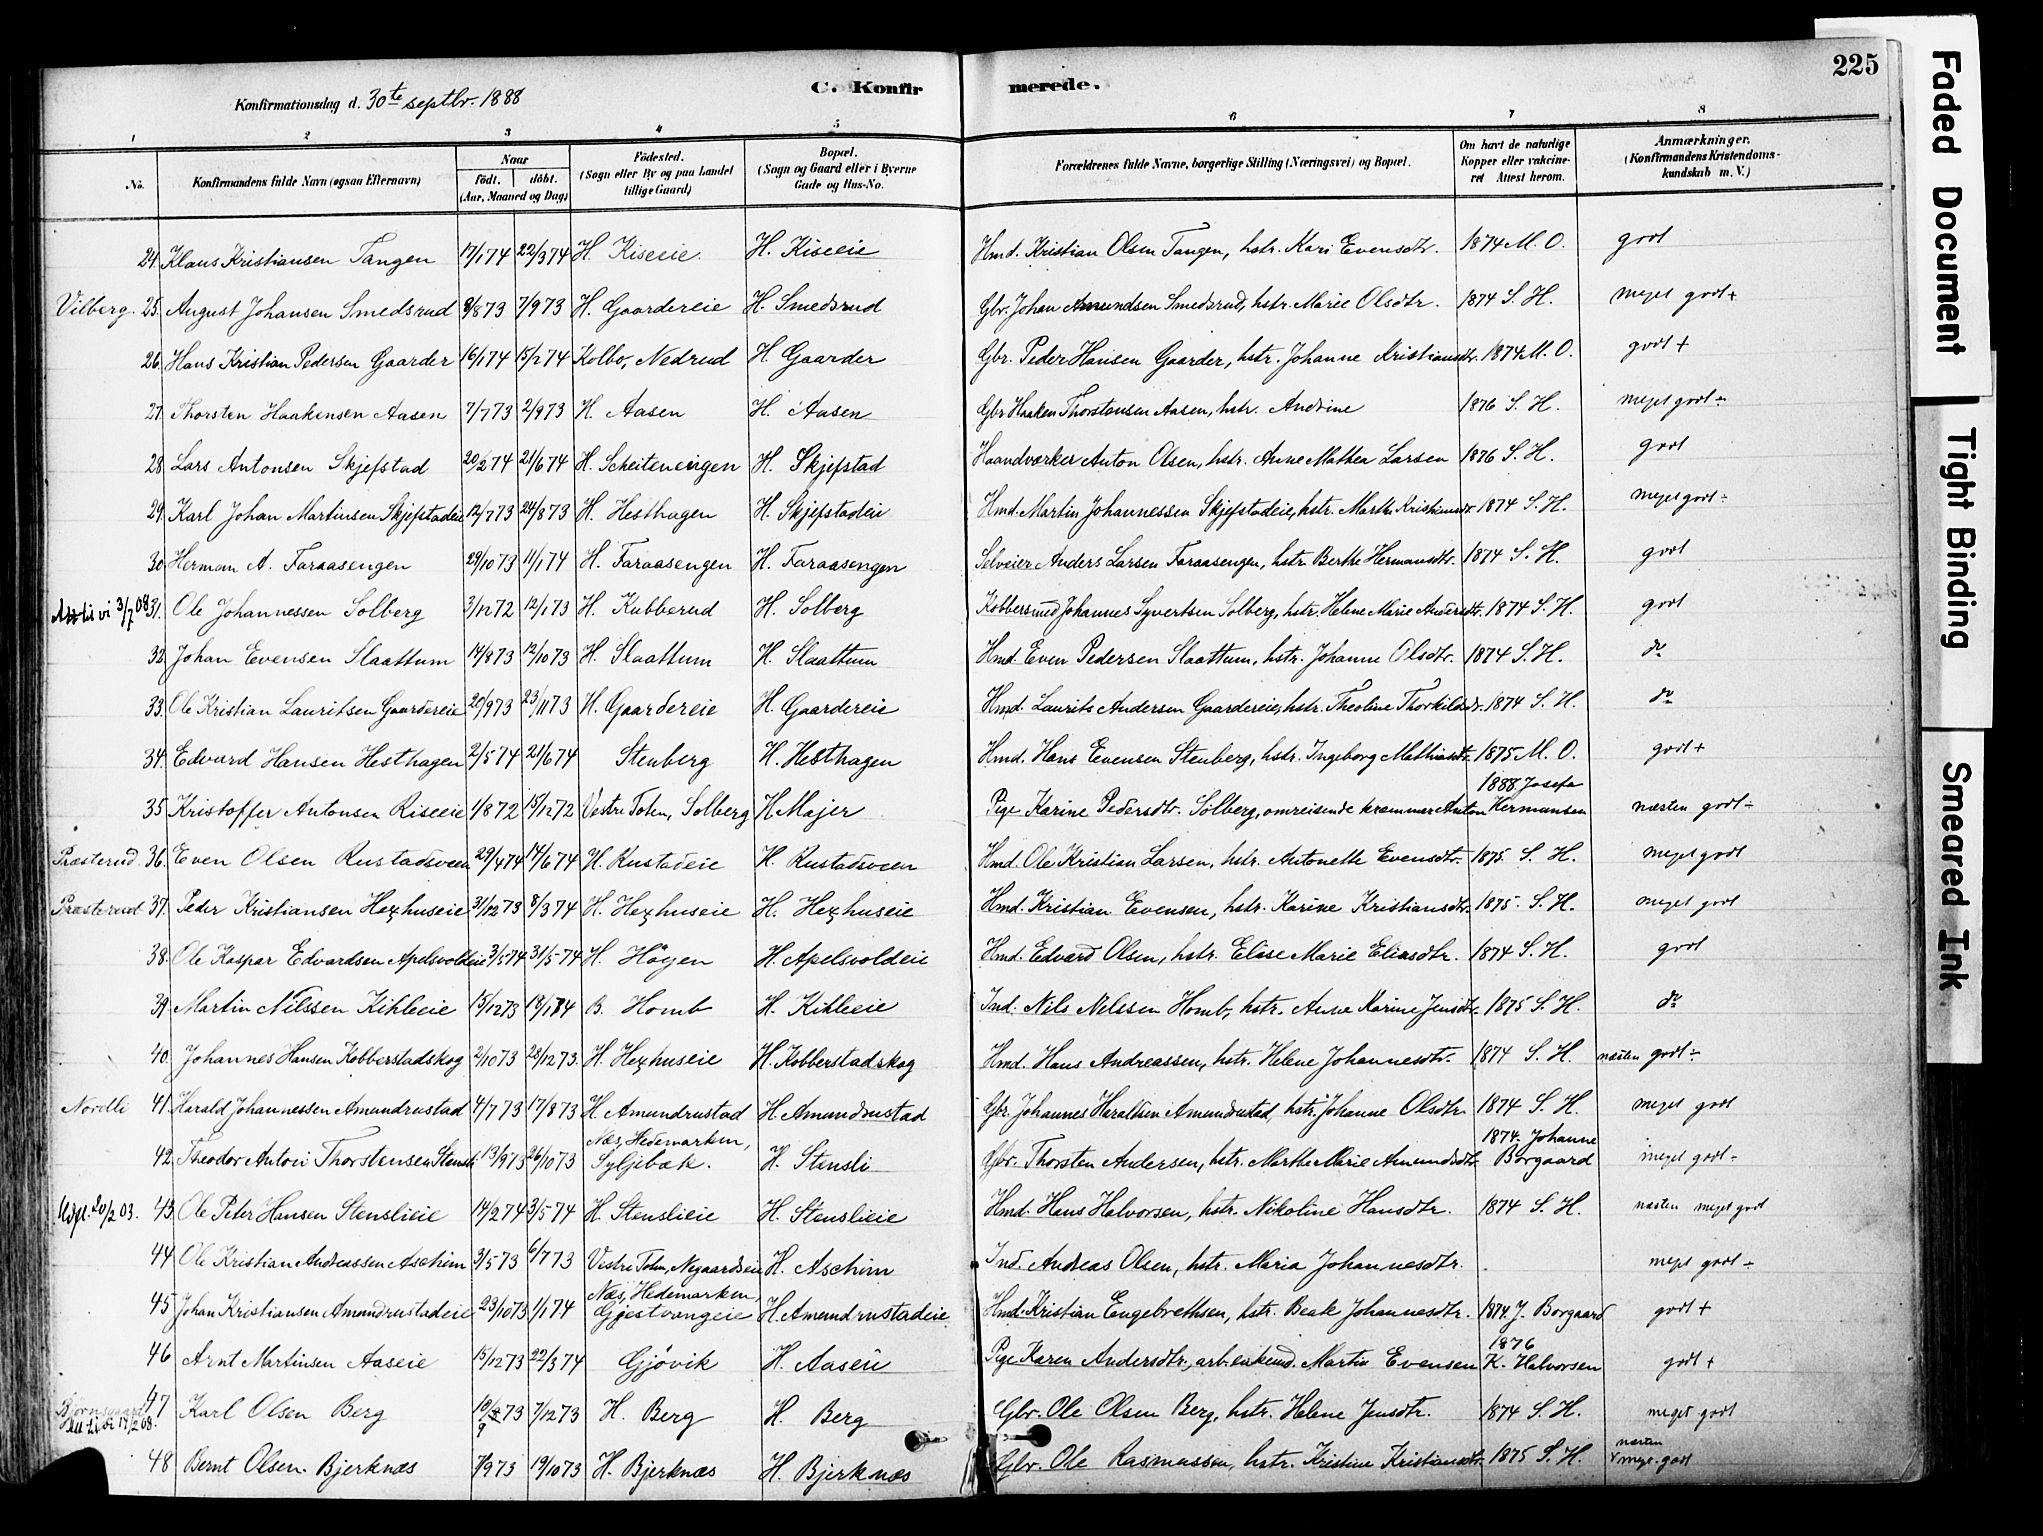 225
Konfirmationsdag d. 30te septbr. 1888 C. Konfirmerede.
1 2 3 4 5 6 7 8
No. Konfirmandens fulde Navn (ogsaa Efternavn) Naar født. døbt. (Aar, Maaned og Dag) Fødested. (Sogn eller By og paa Landet tillige Gaard) Bopæl. (Sogn og Gaard eller i Byerne Gade og Hus-No. Forældrenes fulde Navne, borgerlige Stilling (Næringsvei) og Bopæl. Om havt de naturlige Kopper eller vakcineret Attest herom. Anmærkninger. (Konfirmandens Kristendomskundskab m. V.)
24. Klaus Kristiansen Tangen 17/1 74 22/3 74 H. Kiseeie H. Kiseeie Hmd. Kristian Olsen Tangen, hstr. Kari Evensdtr. 1874 M. O. godt
Vilberg. 25. August Johansen Smedsrud 9/8 73 7/9 73 H. Gaardereie H. Smedsrud Gbr. Johan Amundsen Smedsrud, hstr. Marie Olsdtr. 1874 S. H. meget godt +
26. Hans Kristian Pedersen Gaarder 16/1 74 15/2 74 Kolbo, Nedrud H. Gaarder Gbr. Peder Hansen Gaarder, hstr. Johanne Kristiansdtr. 1874 M. O. godt +
27. Thorsten Haakensen Aasen 7/7 73 2/9 73 H. Aasen H. Aasen Gbr Haaken Thorstensen Aasen, hstr. Andrine 1876 S. H. meget godt ÷
28. Lars Antonsen Skjefstad 20/2 74 21/6 74 H. Scheiteneingen H. Skjefstad Haandværker Anton Olsen, hstr. Anne Mathea Larsen 1876 S. H. godt
29. Karl Johan Martinsen Skjefstadeie 12/7 73 24/8 73 H. Hesthagen H. Skjefstadeie Hmd. Martin Johannessen Skjefstadeie, hstr. Marthe Kristiansdtr 1874 S. H. meget godt ÷
30. Herman A. Faraasengen 29/10 73 11/1 74 H. Faraasengen H. Faraasengen Selveier Anders Larsen Faraasengen, hstr Berthe Hermansdtr. 1874 S. H. godt
vi 3/7 08 31. Ole Johannessen Solberg 3/12 72 12/1 73 H. Kubberud H. Solberg Kobbersmed Johannes Syvertsen Solberg, hstr. Helene Marie Andersdtr. 1874 S. H. godt
32. Johan Evensen Slaattum 14/8 73 12/10 73 H. Slaattum H. Slaattum Hmd. Even Pedersen Slaattum, hstr. Johanne Olsdtr. 1874 S. H. do
33. Ole Kristian Lauritsen Gaardereie 20/9 73 23/11 73 H. Gaardereie H. Gaardereie Hmd. Laurits Andersen Gaardereie, hstr. Theoline Thorkildsdtr. 1874 S. H. do
34. Edvard Hansen Hesthagen 2/5 74 21/6 74 Stenberg H. Hesthagen Hmd. Hans Evensen Stenberg, hstr. Ingeborg Mathiasdtr. 1875 M. O. godt +
35. Kristoffer Antonsen Riseeie 1/8 72 15/12 72 Vestre Toten, Solberg H Majer Pige Karine Pedersdtr. Solberg, omreisende kræmmer Anton Hermansen 1888 Josefa næsten godt ÷
Præsterud. 36. Even Olsen Rustadsveen 23/4 74 14/6 74 H. Rustadeie H. Rustadsveen Hmd. Ole Kristian Larsen, hstr. Antonette Evensdtr. 1875. S. H. meget godt
Præsterud 37. Peder Kristiansen Hexhuseie 31/12 73 8/3 74 H. Hexhuseie H. Hexhuseie Hmd. Kristian Evensen, hstr. Karine Kristiansdtr. 1875. S. H. meget godt
38. Ole Kaspar Edvardsen Apelsvoldeie 3/5 74 31/5 74 H. Högen H. Apelsvoldeie Hmd. Edvard Olsen, hstr. Elise Marie Eliasdtr. 1874 S. H. godt
39. Martin Nilssen Kihleeie 15/12 73 18/1 74 B. Homb H. Kihleeie Ind. Nils Nelssen Homb, hstr. Anne Karine Jensdtr. 1875 S. H. do
40. Johannes Hansen Kobberstadskog 2/10 73 28/12 73. H. Hexhuseie H. Kobberstadskog Hmd. Hans Andreassen, hstr. Helene Johannesdtr. 1874 S. H. næsten godt ÷
Nordli 41. Harald Johannessen Amundrustad 4/7 73 17/8 73 H. Amundrustad H. Amundrustad Gbr. Johannes Haraldsen Amundrustad, hstr. Johanne Olsdtr. 1874 S. H. meget godt
42. Theodor Anton Thorstensen Stensli 13/9 73 26/10 73 Næs, Hedemarken, Syljebæk. H. Stensli Gbr. Thorsten Andersen, hstr. Marthe Marie Amundsdtr. 1874. Johanne Borgaard meget godt ÷
Udgl. 20/2 03. 43. Ole Peter Hansen Stenslieie 14/2 74 3/5 74 H. Stenslieie H. Stenslieie Hmd. Hans Halvorsen, hstr. Nikoline Hansdtr. 1874 S. H. næsten meget godt
44. Ole Kristian Andreassen Aschim 3/5 73 6/7 73 Vestre Toten, Nygaardseie H. Aschim Ind. Andreas Olsen, hstr. Maria Johannesdtr. meget godt ÷
45. Johan Kristiansen Amundrustadeie 23/10 73 1/1 74 Næs, Hedemarken, Gjestvangeie H. Amundrustadeie Hmd. Kristian Engebrethsen, hstr. Beate Johannesdtr. 1874. J. Borgaard godt +
46 Arnt Martinsen Aaseie 15/12 73 22/3 74 Gjøvik H. Aaseie Pige Karen Andersdtr., arb. enkemd. Martin Evensen 1876 K. Halvorsen godt +
47 Karl Olsen Berg 10/9 73 7/12 73 H. Berg H. Berg Gbr. Ole Olsen Berg, hstr. Helene Jensdtr. 1874 S. H. meget godt
48 Bernt Olsen Bjerknæs 7/9 73 19/10 73 H. Bjerknæs H. Bjerknæs Gbr. Ole Rasmussen, hstr. Kristine Kristiansdtr. 1875 S. H. næsten meget godt
Faded Document
Tight Binding
Smeared Ink